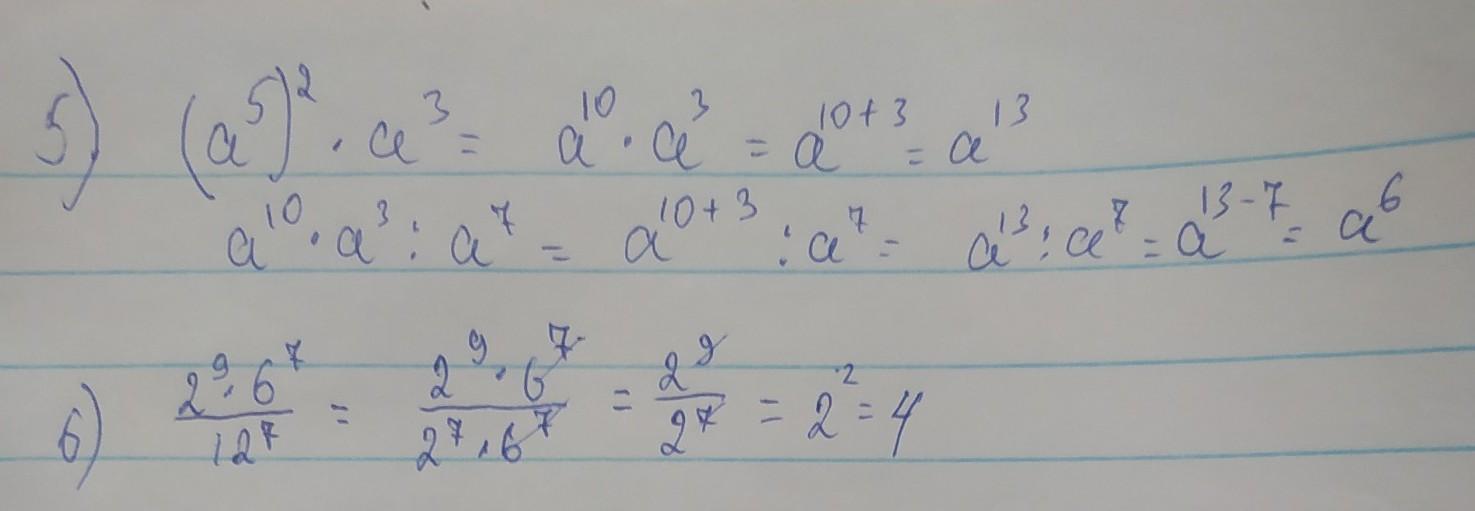 5) (a⁵)² · a³ = a¹⁰ · a³ = a¹⁰⁺³ = a¹³
a¹⁰ · a³ : a⁷ = a¹⁰⁺³ : a⁷ = a¹³ : a⁷ = a¹³⁻⁷ = a⁶
6) (2⁹ · 6⁷)/(12⁷) = (2⁹ · 6⁷)/(2⁷ · 6⁷) = 2⁹/2⁷ = 2² = 4